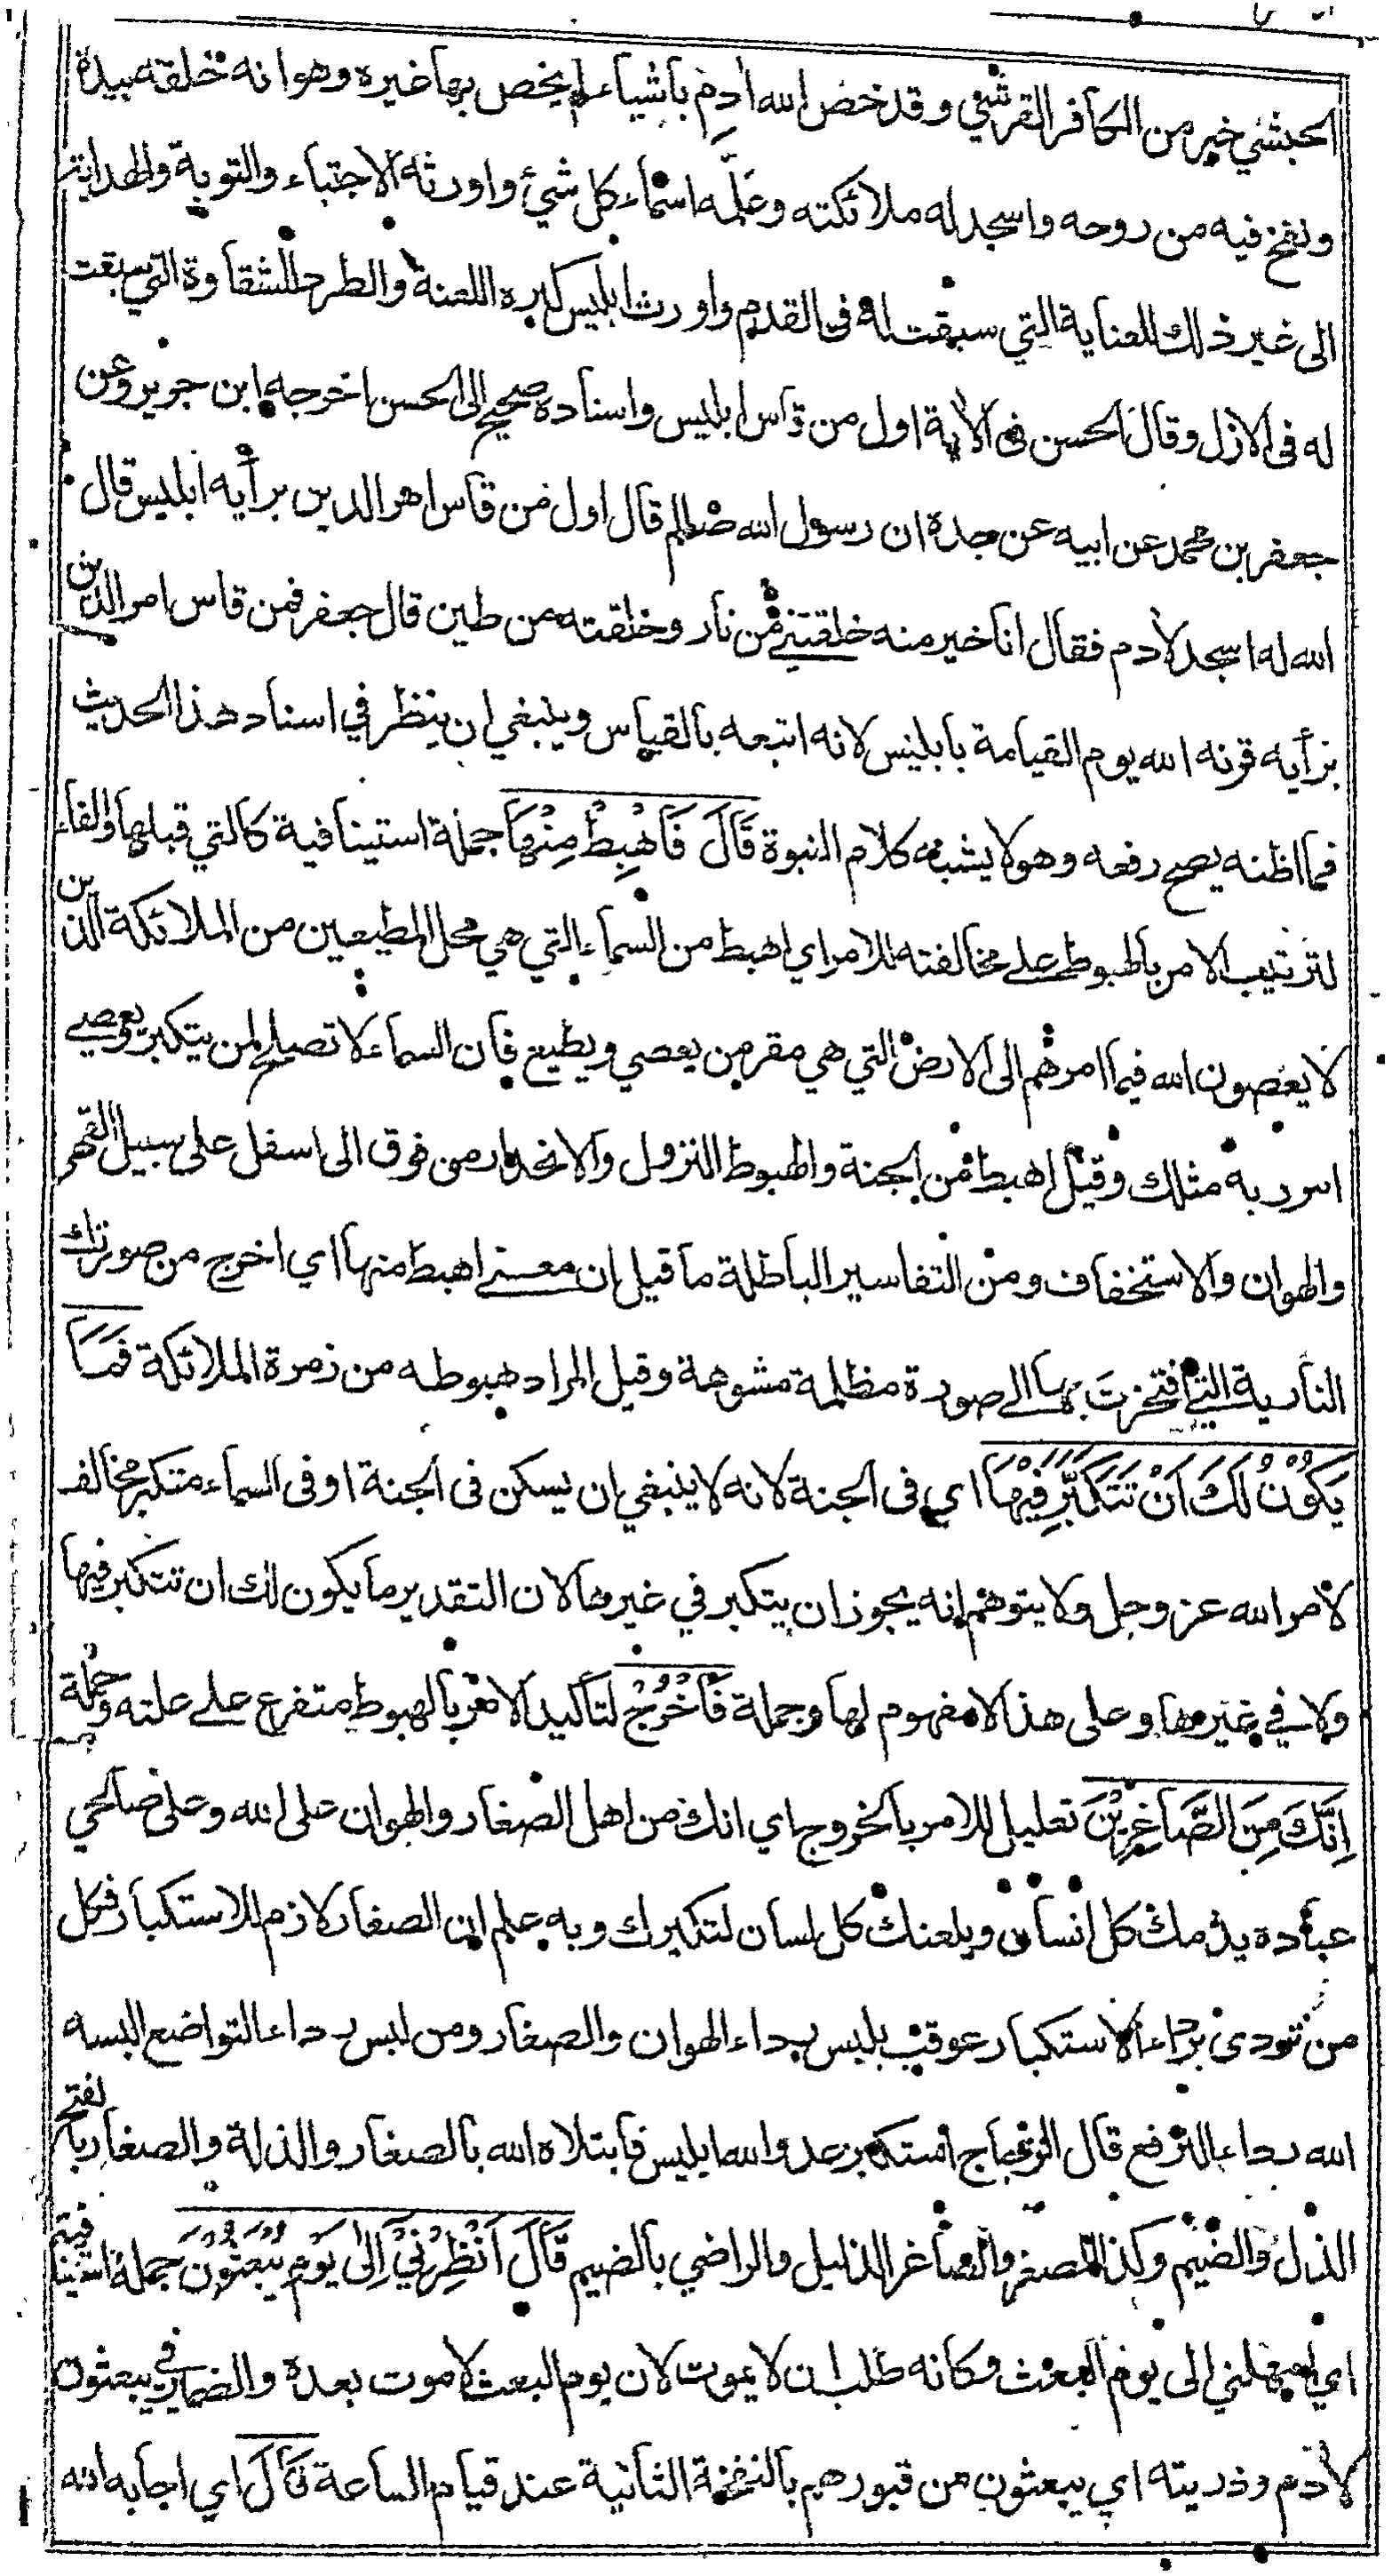 الحبشي خير من الكافر القرشي وقد خص الله ادم باشياء لم يخص بها غيره وهو انه خلقه بيده
ونفخ فيه من روحه واسجد له ملائكته وعلّمه اسماء كل شيئ واورثه الاجتباء والتوبة والهداية
الى غير ذلك للعناية التي سبقت له فى القدم واورث ابليس كبره اللعنة والطرد للشقاوة التي سبقت
له فى الازل وقال الحسن فى الاٰية اول من قاس ابليس واسناده صحيح الى الحسن اخرجه ابن جرير وعن
جعفر بن محمد عن ابيه عن جده ان رسول الله صللم قال اول من قاس امر الدين برأيه ابليس قال
الله له اسجد لأدم فقال انا خير منه خلقتني من نار وخلقته من طين قال جعفر فمن قاس امر الدين
برأيه قرنه الله يوم القيامة بابليس لانه اتبعه بالقياس وينبغي ان ينظر في اسناد هذا الحديث
فما اظنه يصح رفعه وهو لا يشبه كلام النبوة قَالَ فَاهْبِطْ مِنْهَا جملة استينافية كالتي قبلها والفاء
لترتيب الامر بالهبوط على مخالفته للامر اي اهبط من السماء التي هي محل المطيعين من الملائكة الذين
لا يعصون الله فيما امرهم الى الارض التي هي مقر من يعصي ويطيع فان السماء لا تصلح لمن يتكبر ويعصي
امر ربه مثلك وقيل اهبط من الجنة والهبوط النزول والانحدار من فوق الى اسفل على سبيل القهر
والهوان والاستخفاف ومن التفاسير الباطلة ما قيل ان معنى اهبط منها اي اخرج من صورتك
النارية التي افتخرت بها الى صورة مظلمة مشوهة وقيل المراد هبوطه من زمرة الملائكة فَمَا
يَكُوْنُ لَكَ اَنْ تَتَكَبَّرَ فِيْهَا اي فى الجنة لانه لا ينبغي ان يسكن فى الجنة او فى السماء متكبر مخالف
لأمر الله عز وجل ولا يتوهم انه يجوز ان يتكبر في غيرها لان التقدير ما يكون لك ان تتكبر فيها
ولا في غيرها وعلى هذا لا مفهوم لها وجملة فَاخْرُجْ لتأكيد الامر بالهبوط متفرع على علته وجملة
اِنَّكَ مِنَ الصَّاغِرِيْنَ تعليل للامر بالخروج اي انك من اهل الصغار والهوان على الله وعلى صالحي
عباده يذمك كل انسان ويلعنك كل لسان لتكبرك وبه علم ان الصغار لازم للاستكبار فكل
من تردى برداء الاستكبار عوقب بلبس رداء الهوان والصغار ومن لبس رداء التواضع البسه
الله رداء الترفع قال الزجاج استكبر عدو الله ابليس فابتلاه الله بالصغار والذلة والصغار بالفتح
الذل والضيم وكذا المصغر والصاغر الذليل والراضي بالضيم قَالَ اَنْظِرْنِيْ اِلٰى يَوْمِ يُبْعَثُوْنَ جملة استينافية
اي امهلني الى يوم البعث وكانه طلب ان لا يموت لان يوم البعث لا موت بعده والضمير في يبعثون
لأدم وذريته اي يبعثون من قبورهم بالنفخة الثانية عند قيام الساعة قَالَ اي اجابه الله